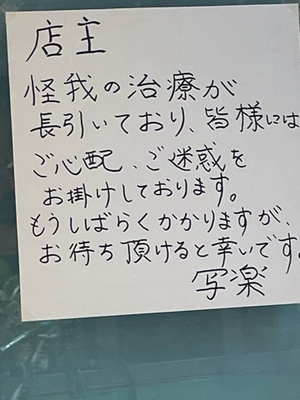 店主
怪我の治療が
長引いており、皆様には
ご心配、ご迷惑を
お掛けしております。
もうしばらくかかりますが、
お待ち頂けると幸いです。
写楽